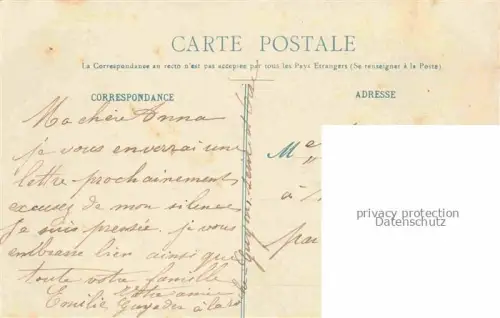 CARTE POSTALE
La Correspondance au recto n'est pas acceptée par tous les Pays Etrangers (Se renseigner à la Poste).
CORRESPONDANCE
ADRESSE
Ma chère Anna
je vous enverrai une
lettre prochainement
excusez de mon silence
Je suis pressée. je vous
embrasse bien ainsi que
toute votre famille
Votre amie
Emilie à la
M
à
par
privacy protection
Datenschutz